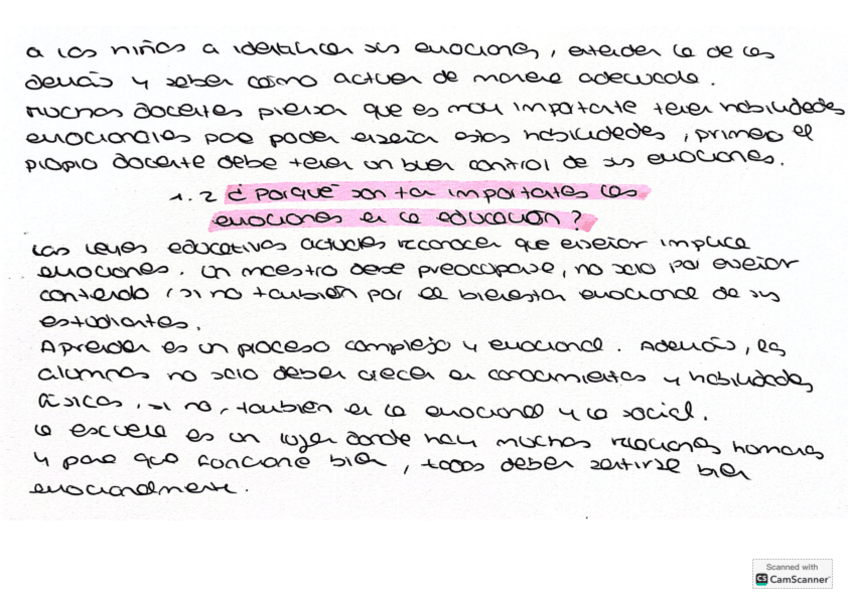 a los niños a identificar sis emociones, entender la de los
demás y saber cómo actuar de manera adecuada.
Muchos docentes piensan que es muy importante tener habilidades
emocionales para poder enseñar estas habilidades, primero el
propio docente debe tener un buen control de sus emociones.
1.2 ¿Porqué son tan importantes las
emociones en la educación?
Las leyes educativas actuales reconocen que enseñar implica
emociones. Un maestro debe preocuparse, no solo por enseñar
contenido, si no también por el bienestar emocional de sus
estudiantes.
Aprender es un proceso complejo y emocional. Además, los
alumnos no solo deben crecer en conocimientos y habilidades
físicas, si no, también en lo emocional y lo social.
La escuela es un lugar donde hay muchas relaciones humanas
y para que funcione bien, todos deben sentirse bien
emocionalmente.
Scanned with
CS CamScanner